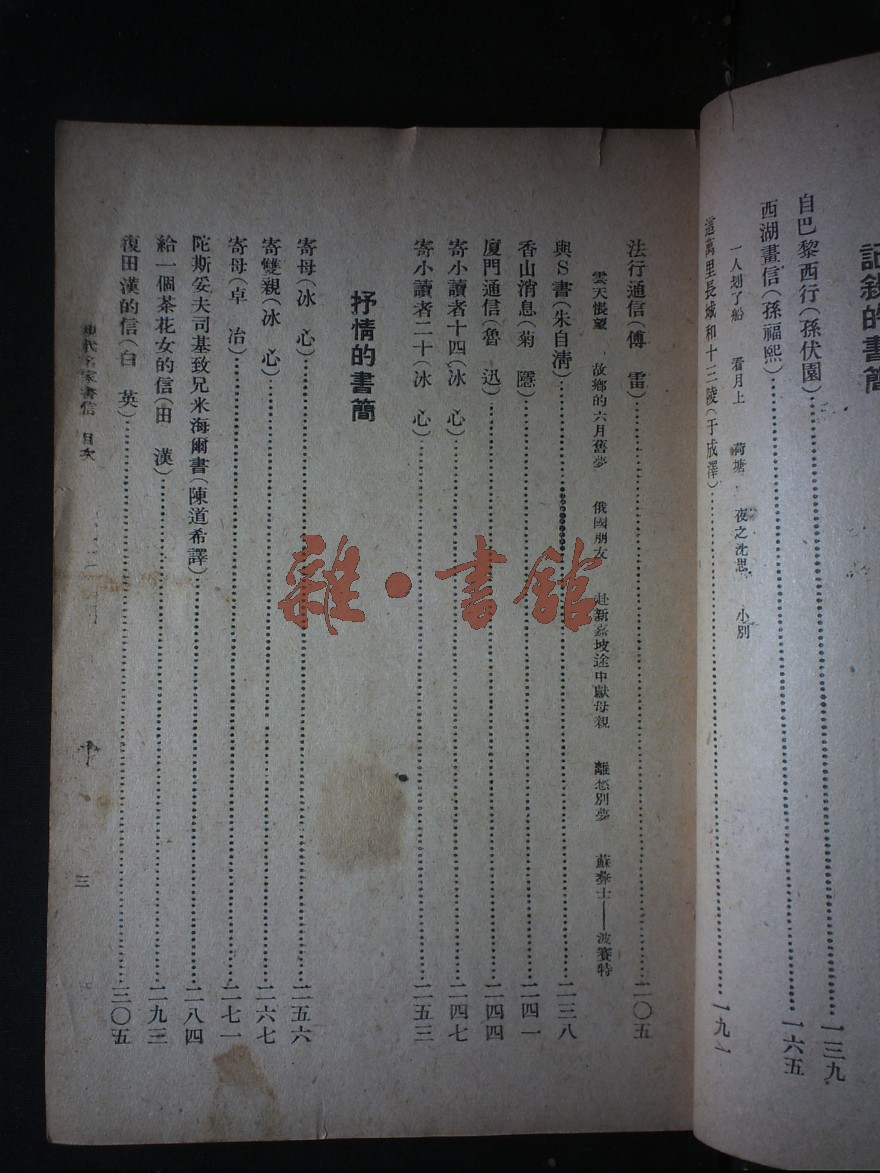 記敍的書簡
自巴黎西行(孫伏園)……一三九
西湖畫信(孫福熙)……一六五
一人划了船 看月上 荷塘 夜之沈思 小別
這萬里長城和十三陵(于成澤)……一九一
法行通信(傅 雷)……二〇五
雲天悵望 故鄉的六月舊夢 俄國朋友 赴新嘉坡途中獻母親 離愁別夢 蘇彝士——波賽特
與S書(朱自淸)……二三八
香山消息(菊 隱)……二四一
廈門通信(魯 迅)……二四四
寄小讀者十四(冰 心)……二四七
寄小讀者二十(冰 心)……二五三
抒情的書簡
寄母(冰 心)……二五六
寄雙親(冰 心)……二六七
寄母(卓 冶)……二七一
陀斯妥夫司基致兄米海爾書(陳道希譯)……二八四
給一個茶花女的信(田 漢)……二九三
復田漢的信(白 英)……三〇五
現代名家書信 目次
三
雜·書館